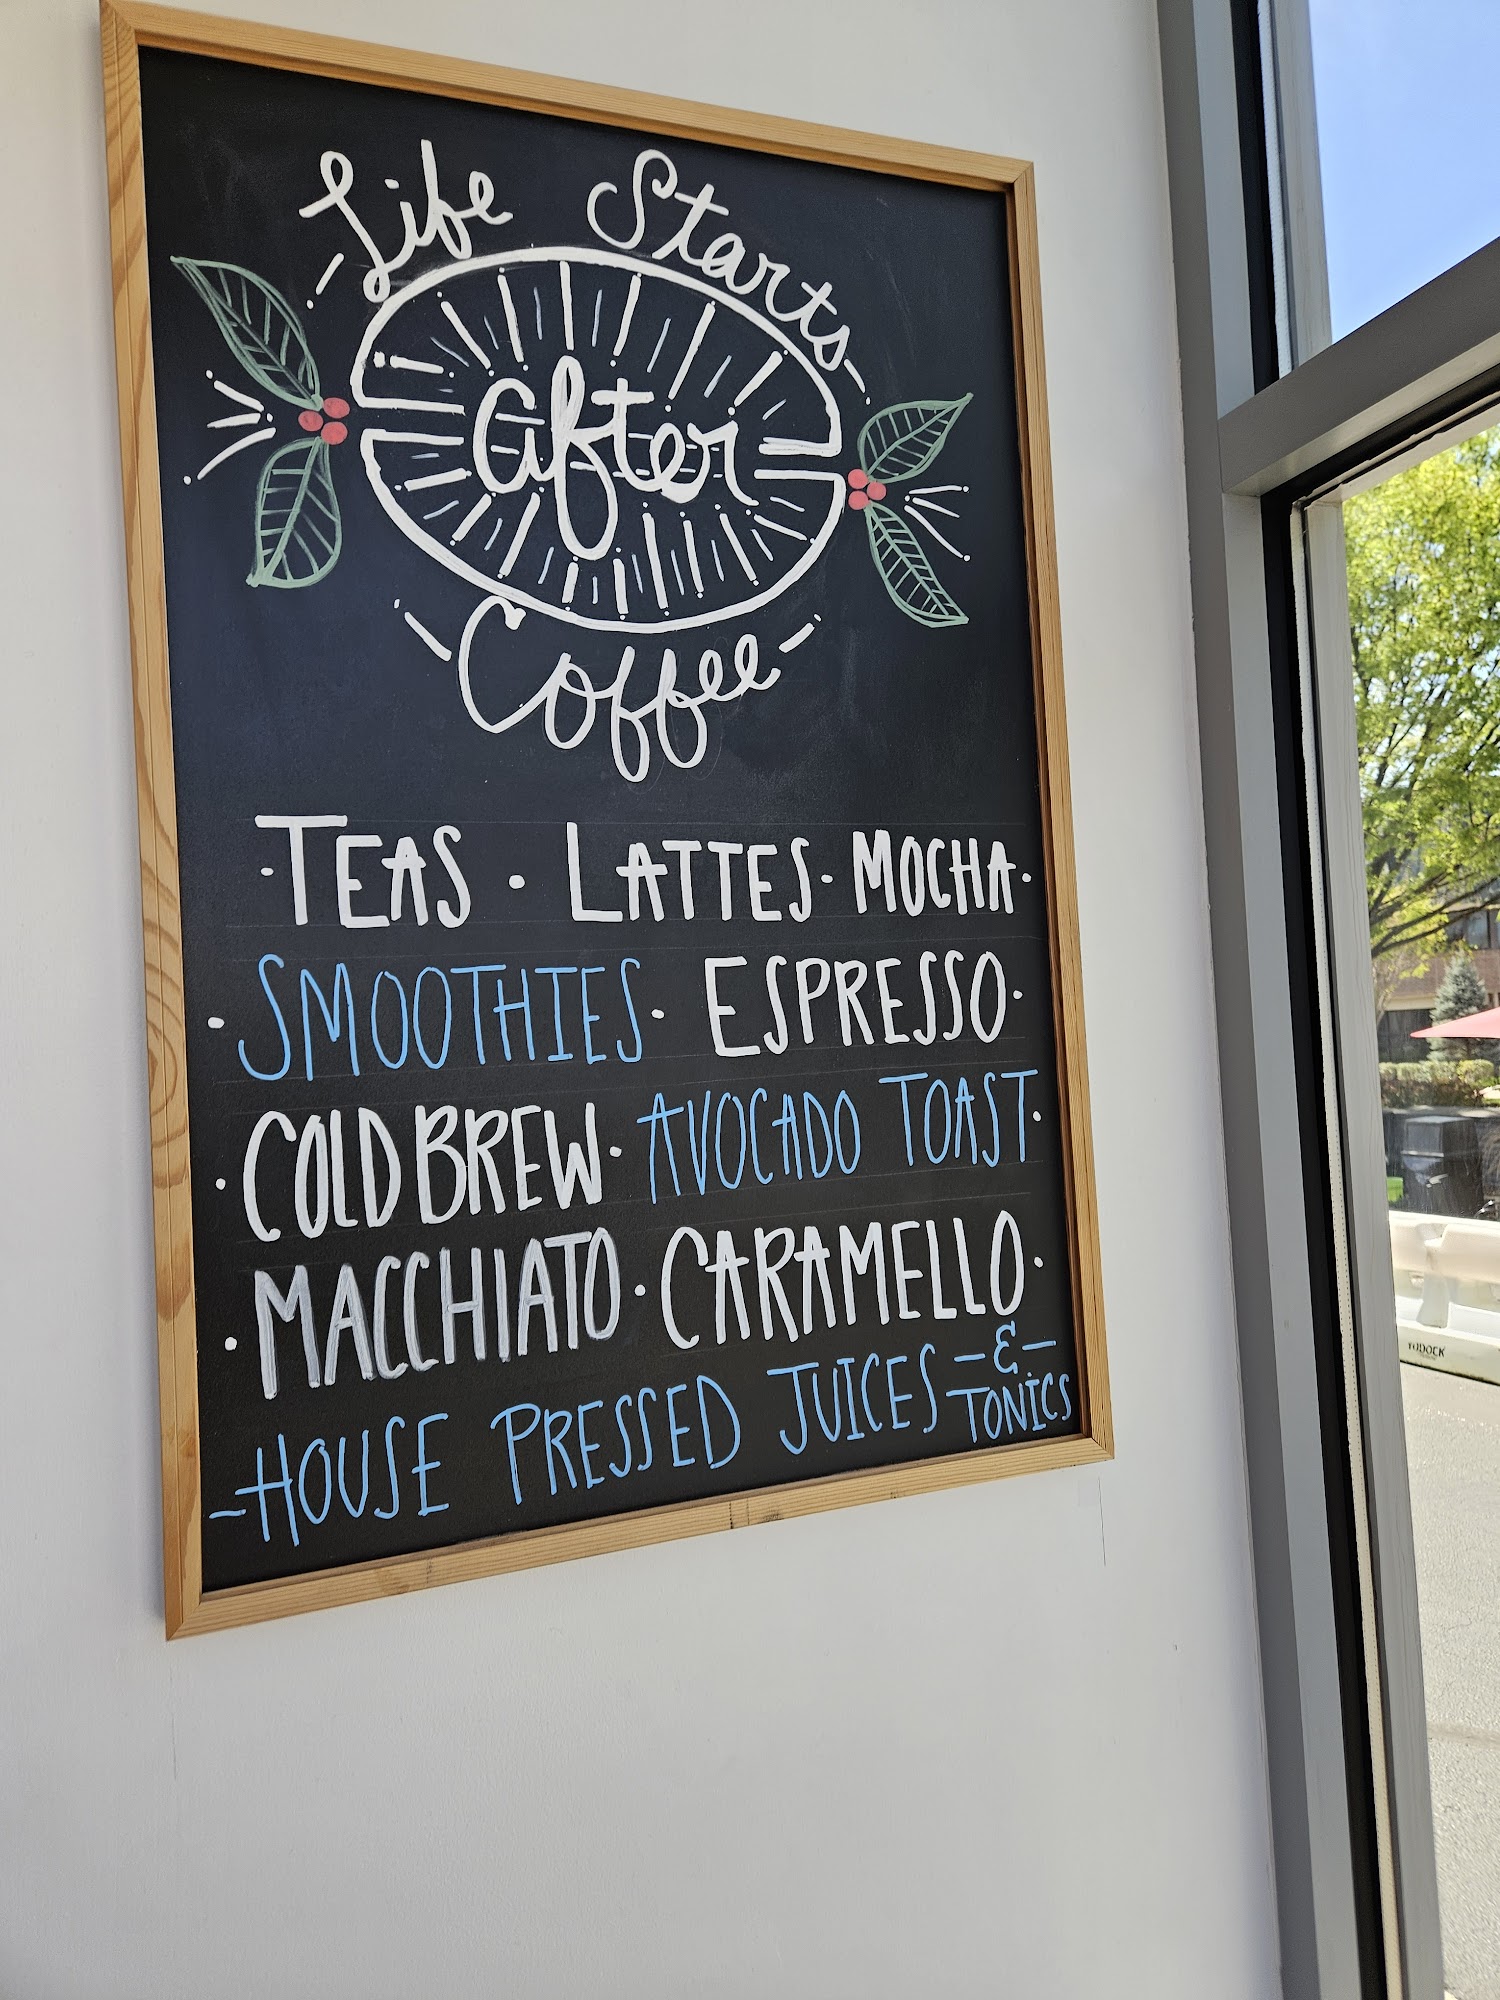 Life Starts
after
Coffee
·TEAS · LATTES· MOCHA·
·SMOOTHIES· ESPRESSO·
·COLD BREW· AVOCADO TOAST·
·MACCHIATO·CARAMELLO·
-HOUSE PRESSED JUICES -&- TONICS
YODOCK